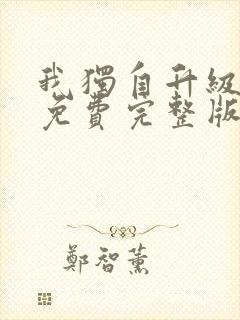 我獨自升級
免費完整版
鄭智薰